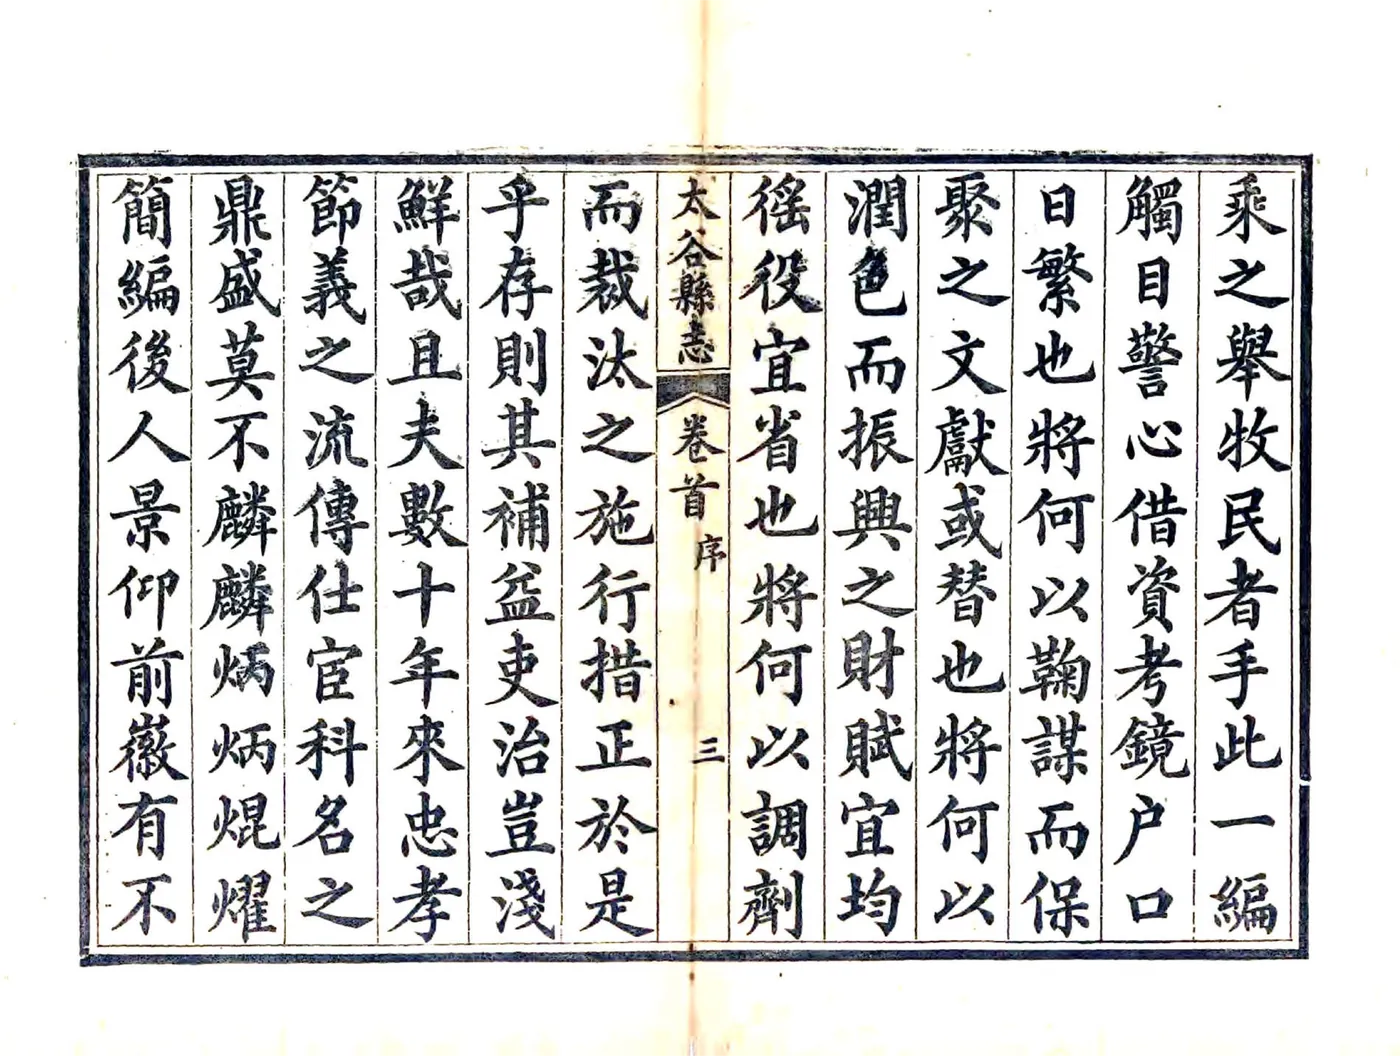 乘之舉牧民者手此一編
觸目警心借資考鏡户口
日繁也將何以鞠謀而保
聚之文獻或替也將何以
潤色而振興之財賦宜均
徭役宜省也將何以調劑
太谷縣志 卷首 序 三
而裁汰之施行措正於是
乎存則其補益吏治豈淺
鮮哉且夫數十年來忠孝
節義之流傳仕宦科名之
鼎盛莫不麟麟炳炳焜燿
簡編後人景仰前徽有不